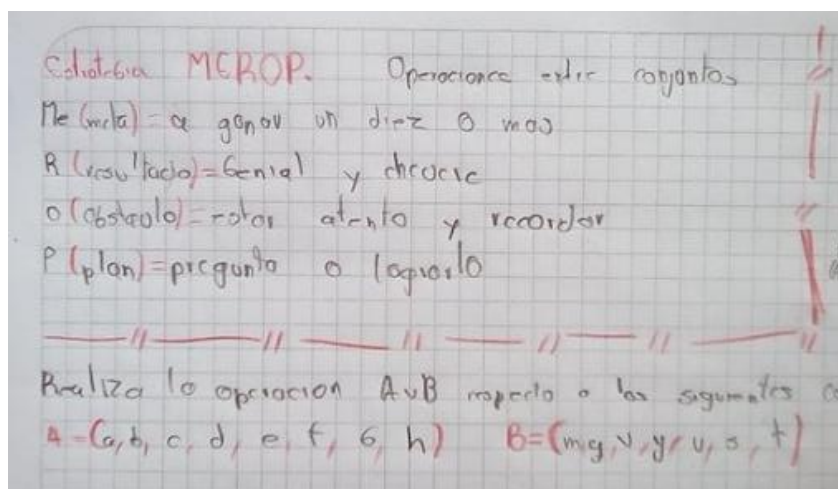 Estrategia MEROP. Operaciones entre conjuntos
Me (meta) = a ganar un diez o mas
R (resultado) = Genial y
O (obstaculo) = estar atento y recordar
P (plan) = pregunto o lograrlo
Realiza la operacion A∪B respecto a los siguientes
A = (a, b, c, d, e, f, 6, h) B = (m, g, v, y, u, s, t)